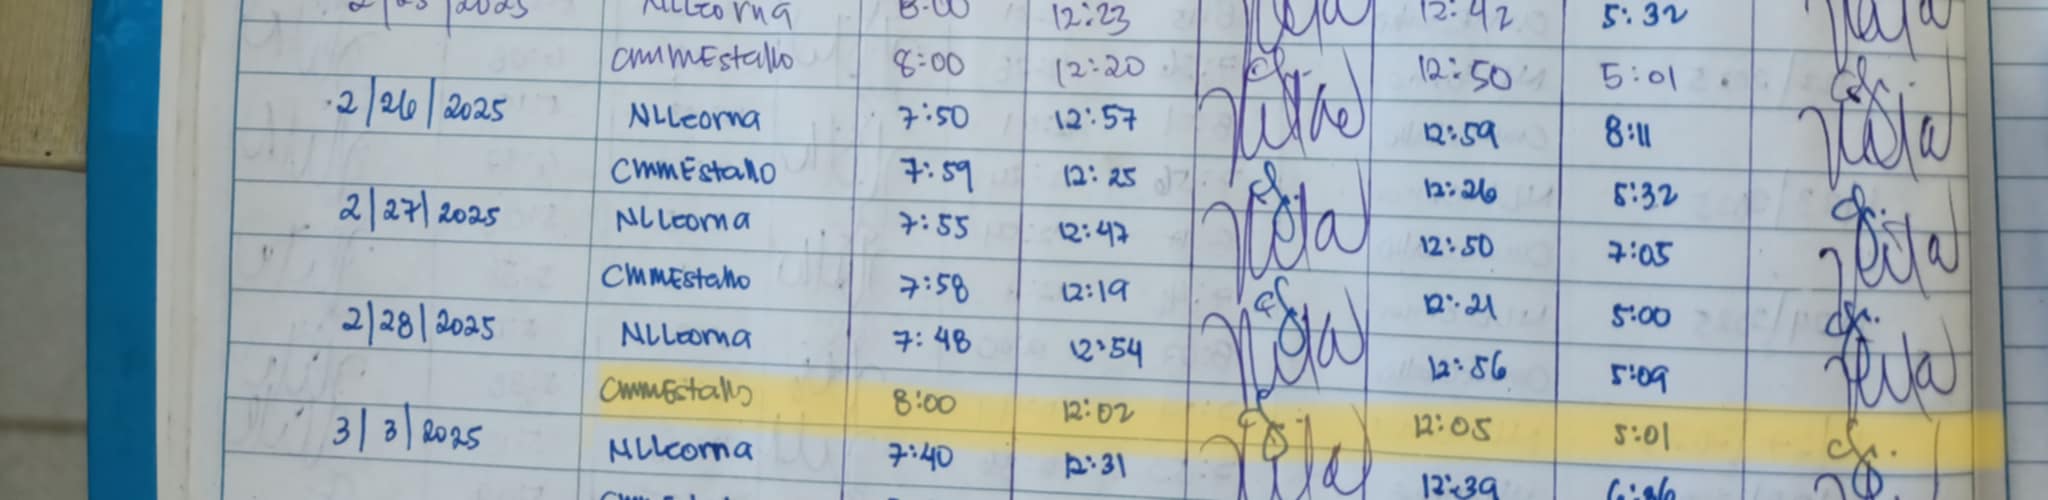 2/25/2025 NLLeorna 8:00 12:23 12:42 5:32
CMMEstallo 8:00 12:20 12:50 5:01
2/26/2025 NLLeorna 7:50 12:57 12:59 8:11
CMMEstallo 7:59 12:25 12:26 5:32
2/27/2025 NLLeorna 7:55 12:47 12:50 7:05
CMMEstallo 7:58 12:19 12:21 5:00
2/28/2025 NLLeorna 7:48 12:54 12:56 5:09
CMMEstallo 8:00 12:02 12:05 5:01
3/3/2025 NLLeorna 7:40 12:31 12:39